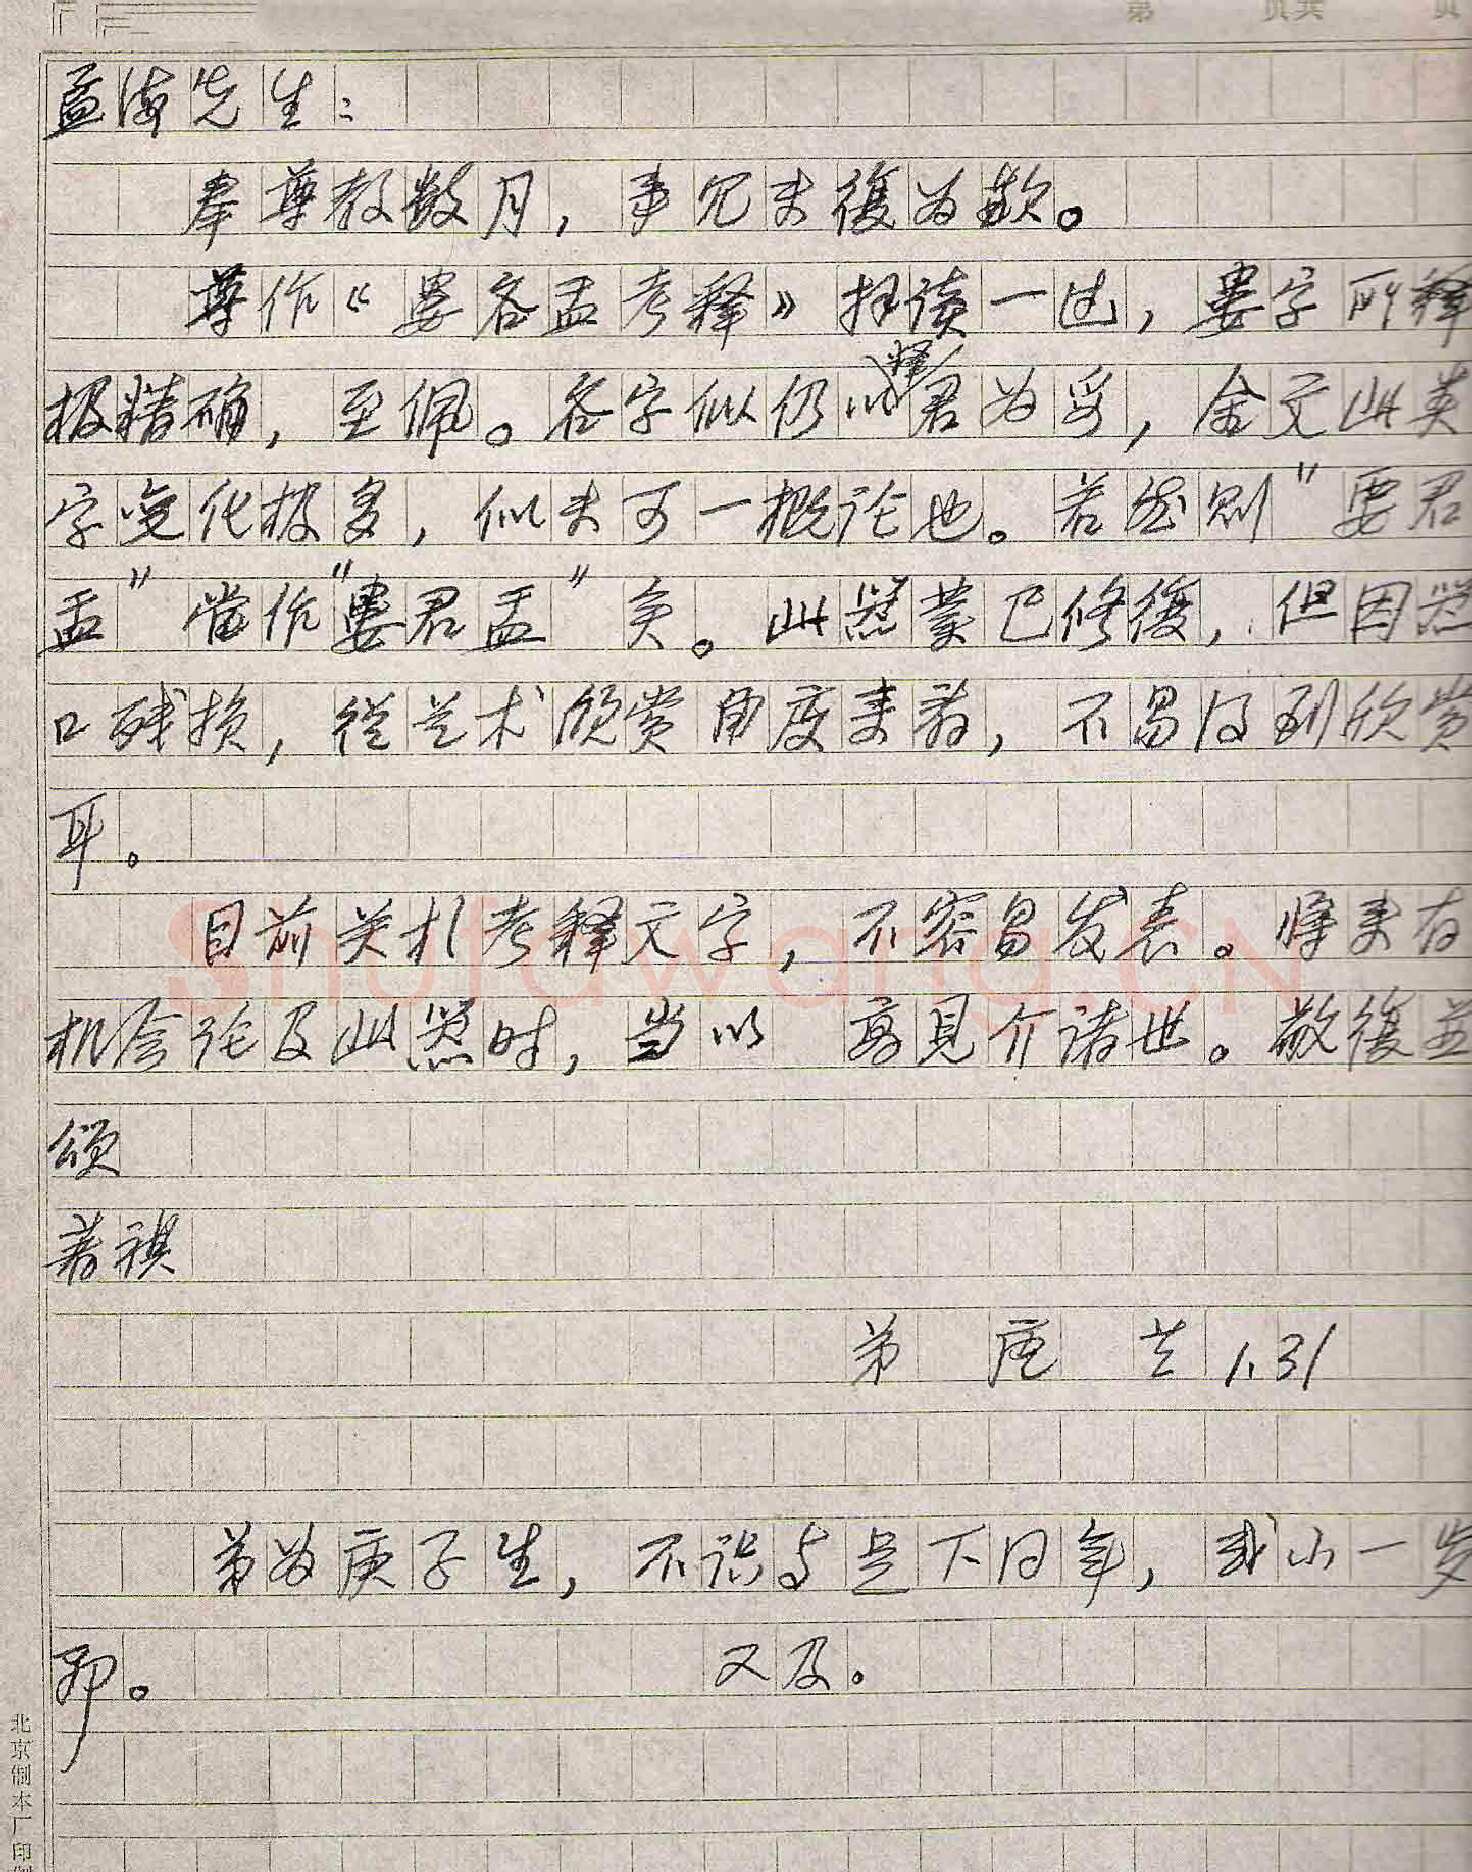 第 页共 页
孟海先生：
奉尊教数月，事冗未復为歉。
尊作《娄各盂考释》拜读一过，娄字所释
释
极精确，至佩。各字似仍以君为妥，金文此类
字变化极多，似未可一概论也。若然则"要君
盂"当作"娄君盂"矣。此器蒙已修復，但因器
口残损，從艺术欣赏角度来看，不易得到欣赏
耳。
目前关於考释文字，不容易发表。将来有
机会论及此器时，当以 高見介诸世。敬復並
頌
著祺
弟 唐兰 1.31
弟为庚子生，不识与足下同年，或小一岁
耶。 又及。
北京制本厂印制
Shufawang.CN